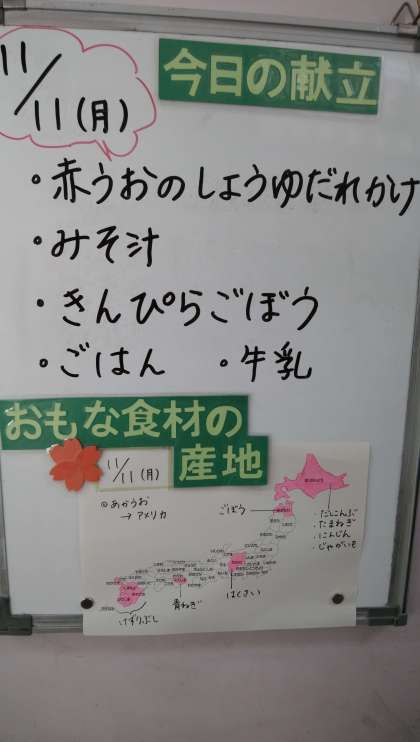 11/11(月)
今日の献立
・赤うおのしょうゆだれかけ
・みそ汁
・きんぴらごぼう
・ごはん ・牛乳
おもな食材の
産地
11/11(月)
◎あかうお
→アメリカ
ごぼう
・だしこんぶ
・たまねぎ
・にんじん
・じゃがいも
はくさい
青ねぎ
けずりぶし